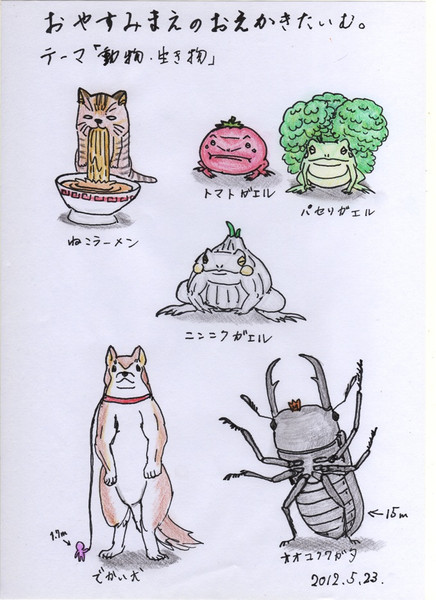 おやすみまえのおえかきたいむ。
テーマ「動物・生き物」
ねこラーメン
トマトガエル
パセリガエル
ニンニクガエル
1.7m
でかい犬
←15m
オオコクワガタ
2012.5.23.